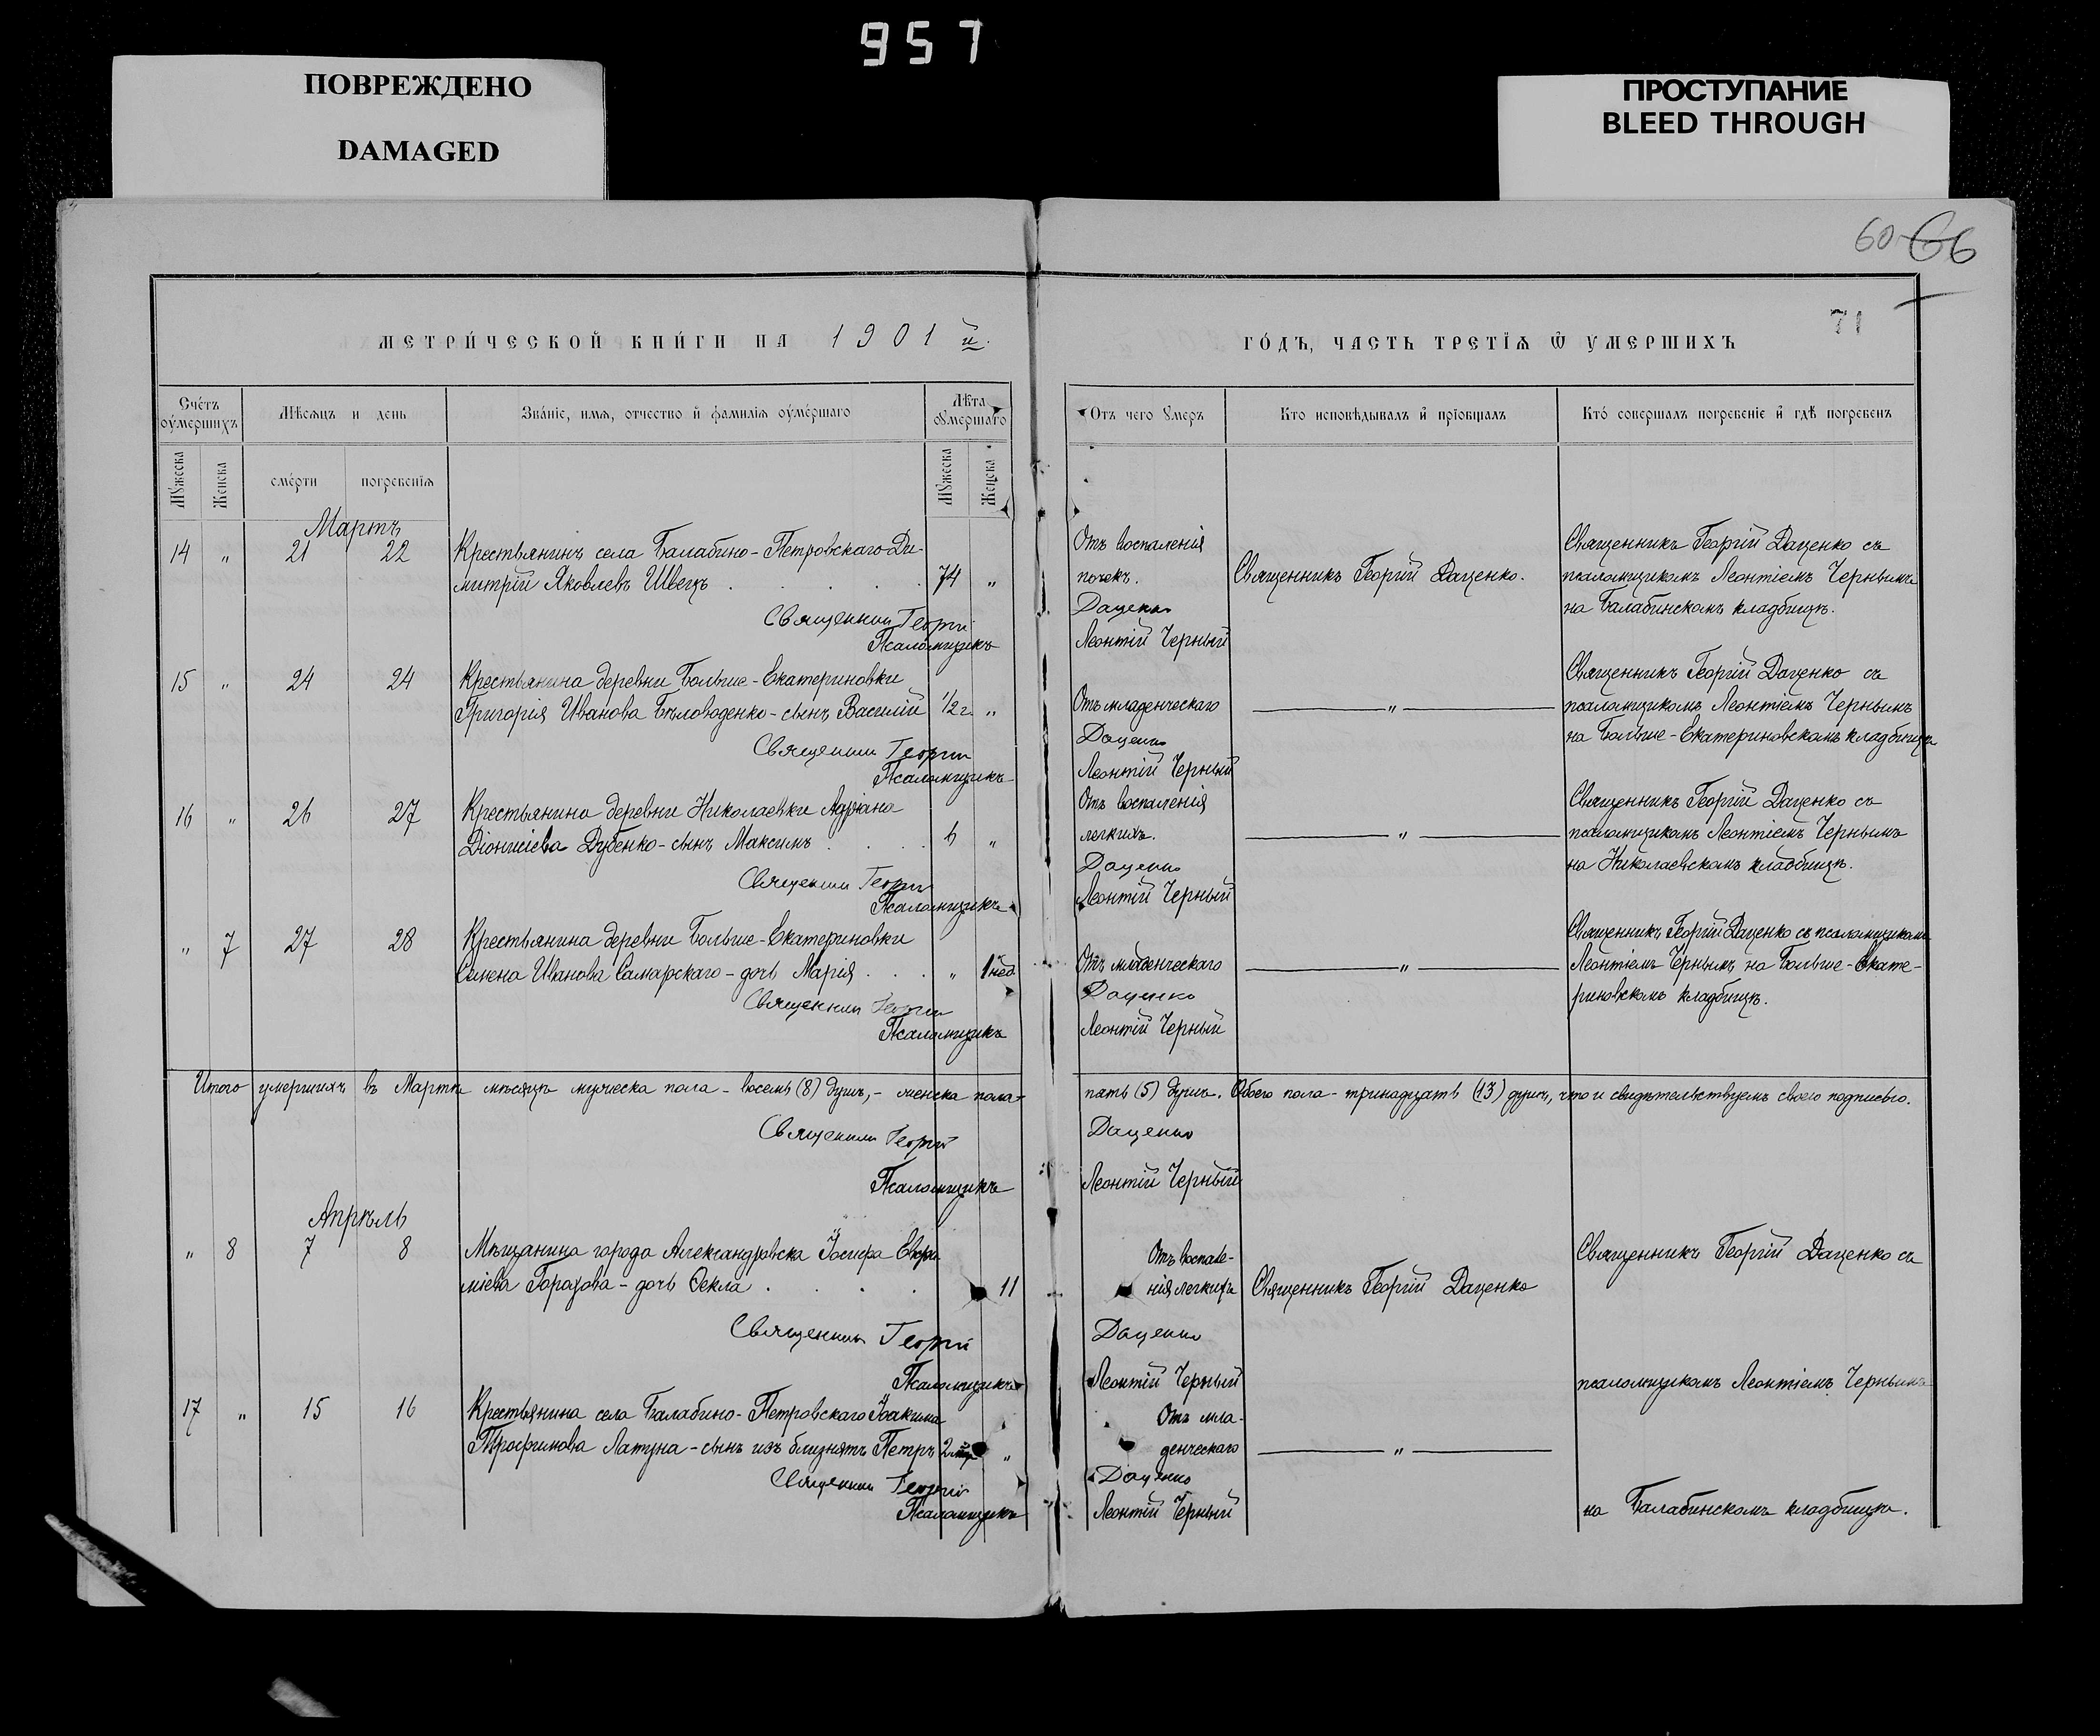 957
ПОВРЕЖДЕНО
DAMAGED
ПРОСТУПАНИЕ
BLEED THROUGH
60 66
71
МЕТРИ́ЧЕСКОЙ КНИ́ГИ НА 1901й.
ГО́ДЪ, ЧАСТЬ ТРЕТЇѦ Ѿ УМЕРШИХЪ
Сче́тъ оу҆ме́ршихъ
Мѣсѧцъ и день
Зва́нїе, имѧ, отчество и҆ фамилїѧ оу҆ме́ршаго
Лѣта оу҆мершаго
Отъ чего ᲂумеръ
Кто исповѣдывалъ и҆ прїобщалъ
Кто́ совершалъ погребенїе и҆ гдѣ погребенъ
Мꙋжеска
Женска
сме́рти
погребенїѧ
Мꙋжеска
Женска
Мартъ
14 " 21 22 Крестьянинъ села Балабино-Петровскаго Ди-
митрій Яковлевъ Швецъ . . . . . 74 "
Священник Георгій
Псаломщикъ
Отъ воспаленія
почекъ.
Даценко
Леонтій Черный
Священникъ Георгій Даценко.
Священникъ Георгій Даценко съ
псаломщикомъ Леонтіемъ Чернымъ
на Балабинскомъ кладбищѣ.
15 " 24 24 Крестьянина деревни Больше-Екатериновки
Григорія Иванова Бѣловоденко-сынъ Василій 1/2 г. "
Священник Георгій
Псаломщикъ
Отъ младенческаго
Даценко
Леонтій Черный
"
Священникъ Георгій Даценко съ
псаломщикомъ Леонтіемъ Чернымъ
на Больше-Екатериновскомъ кладбищѣ
16 " 26 27 Крестьянина деревни Николаевки Адріана
Діонисіева Дубенко-сынъ Максимъ . . . "
Священник Георгій
Псаломщикъ
Отъ воспаленія
легкихъ.
Даценко
Леонтій Черный
"
Священникъ Георгій Даценко съ
псаломщикомъ Леонтіемъ Чернымъ
на Николаевскомъ кладбищѣ.
" 7 27 28 Крестьянина деревни Больше-Екатериновки
Семена Иванова Самарскаго-дочь Марія . . . " 1 нед
Священник Георгій
Псаломщикъ
Отъ младенческаго
Даценко
Леонтій Черный
"
Священникъ Георгій Даценко съ псаломщикомъ
Леонтіемъ Чернымъ на Больше-Екате-
риновскомъ кладбищѣ.
Итого умершихъ въ Мартѣ мѣсяцѣ мужеска пола - восемь (8) душъ, - женска пола - пять (5) душъ. Обоего пола - тринадцать (13) душъ, что и свидѣтельствуемъ своею подписью.
Священник Георгій Даценко
Псаломщикъ Леонтій Черный
Апрѣль
" 8 7 8 Мѣщанина города Александровска Іосифа Евфи
міева Горохова - дочь Ѳекла . . . . 11
Священник Георгій
Псаломщикъ
Отъ воспале-
нія легкихъ
Даценко
Леонтій Черный
Священникъ Георгій Даценко
Священникъ Георгій Даценко съ
псаломщикомъ Леонтіемъ Чернымъ
17 " 15 16 Крестьянина села Балабино-Петровскаго Іоакима
Трофимова Латуна-сынъ изъ близнятъ Петръ "
Священник Георгій
Псаломщикъ
Отъ мла-
денческаго
Даценко
Леонтій Черный
"
на Балабинскомъ кладбищѣ.